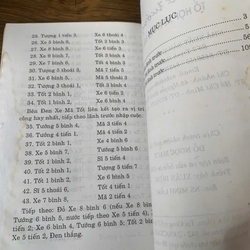 25. Tướng 1 tiến 2, Xe 6 thoái 3
28. Xe 5 bình 8, Tốt 2 bình 3
Xe 8 bình 5, Xe 6 bình 5
Xe 5 bình 8, Tốt 3 bình 4
31. Xe 8 bình 5, Xe 5 bình 6
Xe 5 bình 8, Xe 6 tiến 3
Tướng 3 thoái 1, Mã 3 thoái 5
34. Tốt 1 bình 2, Xe 6 bình 1
Bên Đen Xe Mã Tốt liên kết tạo ra vị trí
công hay nhất, tiếp theo lãnh trước nhập cuộc.
35. Tướng 3 bình 4, Mã 5 tiến 4
36. Xe 5 bình 6, Mã 4 tiến 2
37. Tướng 4 thoái 1, Mã 2 tiến 3
38. Tướng 4 bình 5, Xe 1 bình 5
39. Tốt 2 bình 3, Xe 5 tiến 2
40. Tướng 5 bình 4, Sĩ 5 tiến 4
41. Tốt 3 bình 4, Tượng 5 tiến 7
42. Sĩ 5 thoái 6, Tốt 4 tiến 1
43. Xe 7 bình 8, Mã 3 tiến 4
Tiếp theo: Đỏ Xe 8 bình 6 (nếu Xe 8 bình
Tướng 6 bình 5, nước tiếp theo Xe 5 tiến 4),
tiến 2; Xe 6 bình 4, Tướng 6 bình 5; Tốt 2 bình
Xe 5 tiến 2, Đen thắng.
MỤC LỤC
3
trước 56
trước 109